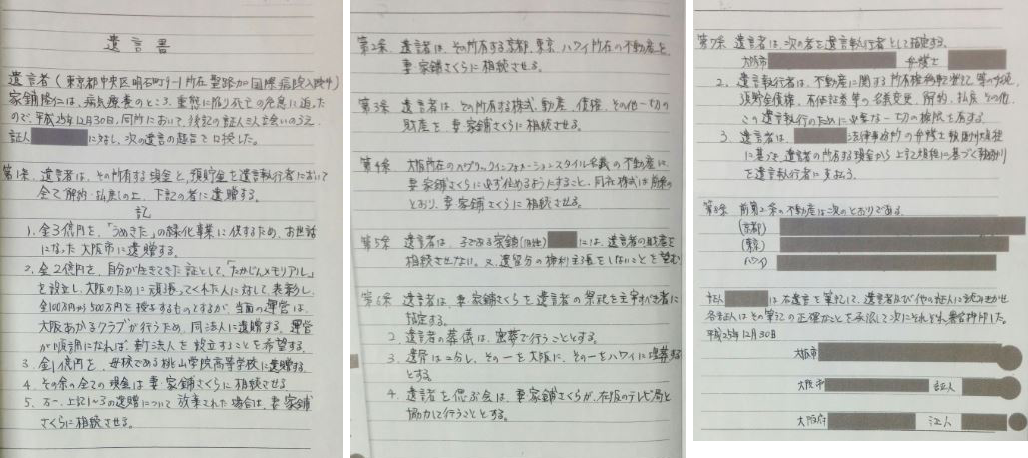 遺言書
遺言者(東京都中央区明石町9-1所在 聖路加国際病院入院中)
家鋪隆仁は、病気療養のところ、重態に陥り死亡の危急に迫った
ので、平成25年12月30日、同所において、後記の証人3人立会いのうえ、
証人 に対し、次の遺言の趣旨を口授した。
第1条、遺言者は、その所有する現金と預貯金を遺言執行者において
全て解約・払戻しの上、下記の者に遺贈する。
記
1. 金3億円を、「うめきた」の緑化事業に供するため、お世話
になった大阪市に遺贈する。
2. 金2億円を、自分が生きてきた証として、「たかじんメモリアル」
を設立し、大阪のために頑張ってくれた人に対して、表彰し、
金100万円から500万円を授与するものとするが、当面の運営は、
大阪あかるクラブが行うため、同法人に遺贈する。運営
が順調になれば、新法人を設立することを希望する。
3. 金1億円を、母校である桃山学院高等学校に遺贈する。
4. その余の全ての現金は妻家鋪さくらに相続させる。
5. 万一、上記1〜3の遺贈について放棄された場合は、妻家鋪
さくらに相続させる。
第2条 遺言者は、その所有する京都、東京、ハワイ所在の不動産を、
妻家鋪さくらに相続させる。
第3条 遺言者は、その所有する株式、動産、債権、その他一切の
財産を、妻家鋪さくらに相続させる。
第4条 大阪所在の 名義の不動産に、
妻家鋪さくらに必ず住めるようにすること、同社株式は前条の
とおり、妻家鋪さくらに相続させる。
第5条 遺言者は、子である家鋪(旧姓) には、遺言者の財産を
相続させない。又、遺留分の権利主張をしないことを望む
第6条 遺言者は、妻家鋪さくらを遺言者の祭祀を主宰すべき者に
指定する。
2. 遺言者の葬儀は、密葬で行うこととする。
3. 遺骨は二分し、その一を大阪に、その一をハワイに埋葬する
とする。
4. 遺言者を偲ぶ会は、妻家鋪さくらが、在阪のテレビ局と
協力して行うこととする。
第7条 遺言者は、次の者を遺言執行者として指定する。
大阪市 弁護士
2. 遺言執行者は、不動産に関する所有権移転登記等の手続、
預貯金債権、有価証券等の名義変更、解約、払戻その他、
この遺言執行のために必要な一切の権限を有する。
3. 遺言者は、 法律事務所の弁護士報酬規程
に基づき、遺言者の所有する現金から上記規程に基づく報酬
を遺言執行者に支払う。
第8条 前第2条の不動産は次のとおりである。
(京都)
(東京)
(ハワイ)
証人 は本遺言を筆記して、遺言者及び他の証人に読み聞かせ
各証人はその筆記の正確なことを承認して次にそれぞれ署名押印した。
平成25年12月30日
大阪市
大阪市 証人
大阪府 証人